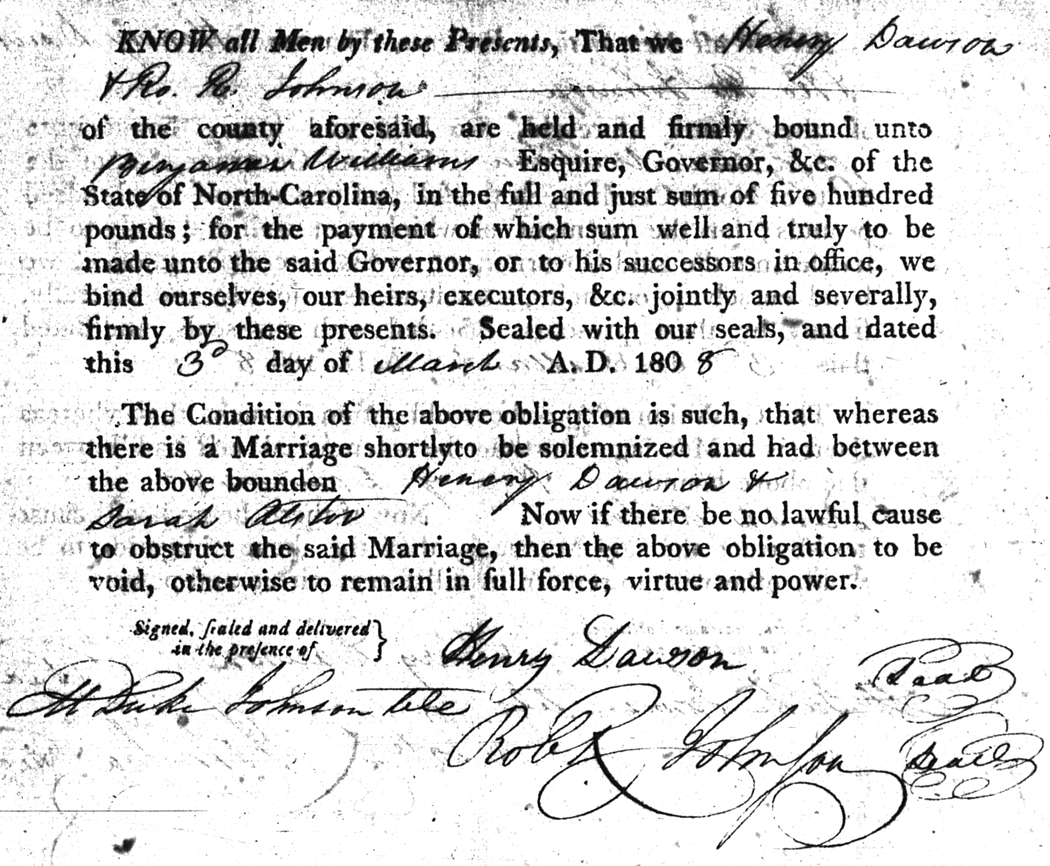 KNOW all Men by these Presents, That we Henry Dawson
& Ro. R. Johnson
of the county aforesaid, are held and firmly bound unto
Benjamin Williams Esquire, Governor, &c. of the
State of North-Carolina, in the full and just sum of five hundred
pounds; for the payment of which sum well and truly to be
made unto the said Governor, or to his successors in office, we
bind ourselves, our heirs, executors, &c. jointly and severally,
firmly by these presents. Sealed with our seals, and dated
this 3d day of March A. D. 1808
The Condition of the above obligation is such, that whereas
there is a Marriage shortly to be solemnized and had between
the above bounden Henry Dawson &
Sarah Alston Now if there be no lawful cause
to obstruct the said Marriage, then the above obligation to be
void, otherwise to remain in full force, virtue and power.
Signed, sealed and delivered }
in the presence of
Henry Dawson Seal
M Duke Johnson
Robt R Johnson Seal